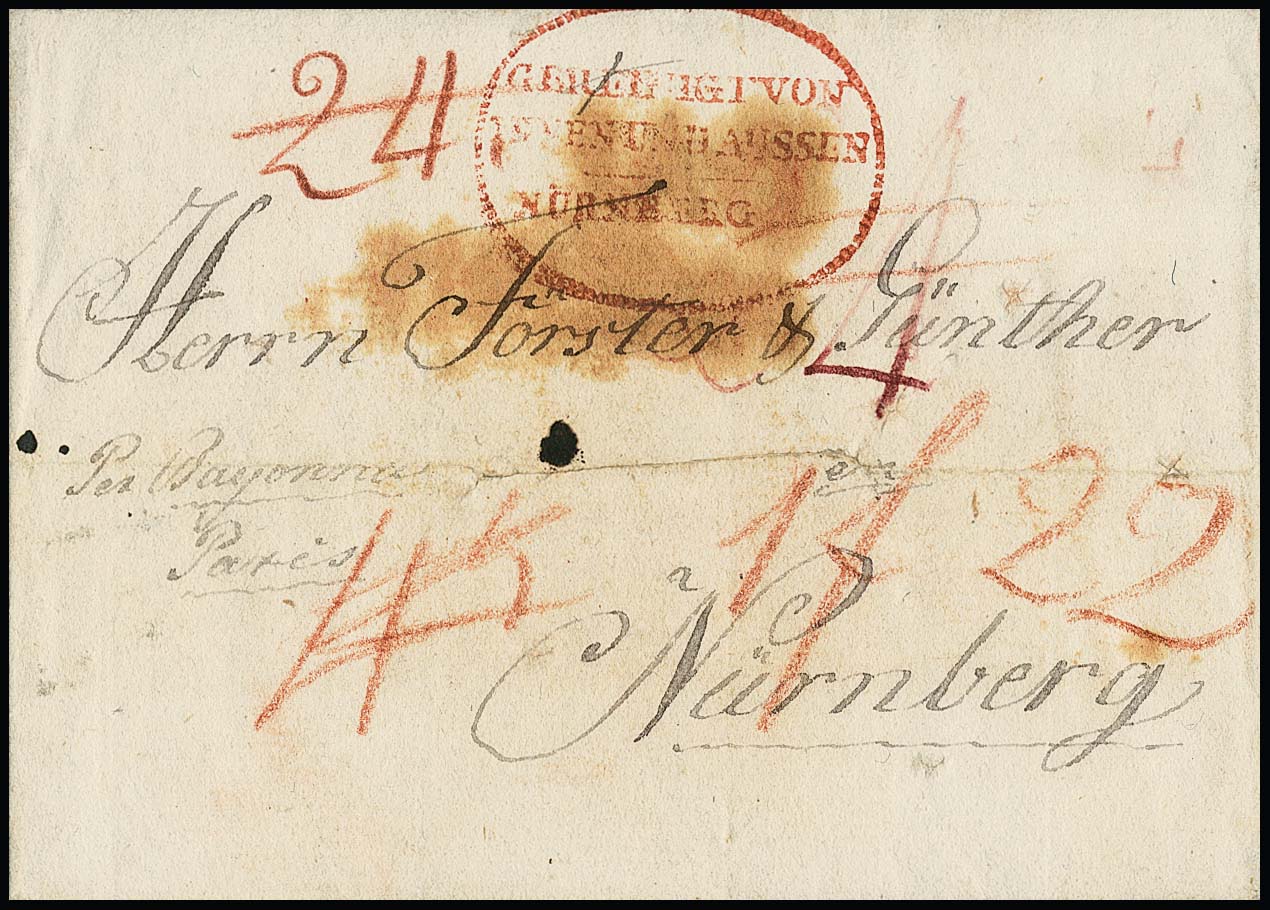 24
GEREINIGT VON
INNEN UND AUSSEN
NÜRNBERG
Herrn Förster & Günther
4
Per Bayonne
en
Paris
22
Nürnberg